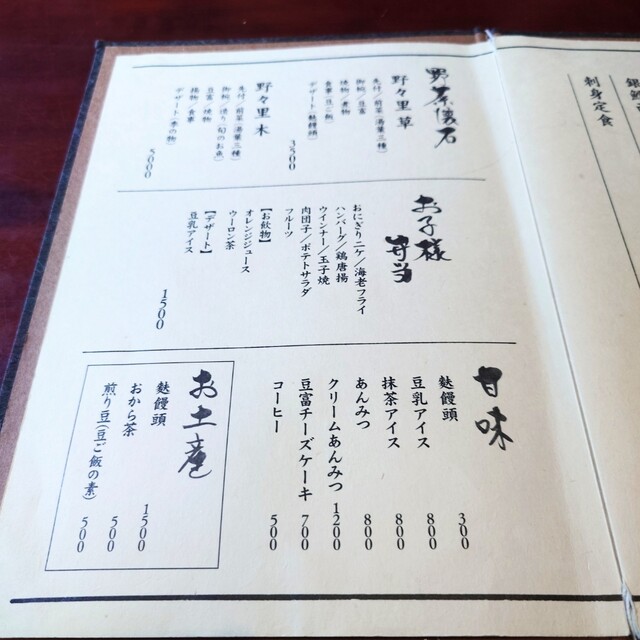 銀
刺身定食
野茶懐石
野々里草
先付/前菜(湯葉三種)
御椀/豆富
焼物/煮物
食事(豆ご飯)
デザート(麩饅頭)
3500
野々里木
先付/前菜(湯葉三種)
御椀/造り(旬のお魚)
豆富/焼物
揚物/食事
デザート(季の物)
5000
お子様弁当
おにぎり二ケ/海老フライ
ハンバーグ/鶏唐揚
ウインナー/玉子焼
肉団子/ポテトサラダ
フルーツ
【お飲物】
オレンジジュース
ウーロン茶
【デザート】
豆乳アイス
1500
甘味
麩饅頭 300
豆乳アイス 800
抹茶アイス 800
あんみつ 800
クリームあんみつ 1200
豆富チーズケーキ 700
コーヒー 500
お土産
麩饅頭 1500
おから茶 500
煎り豆(豆ご飯の素) 500